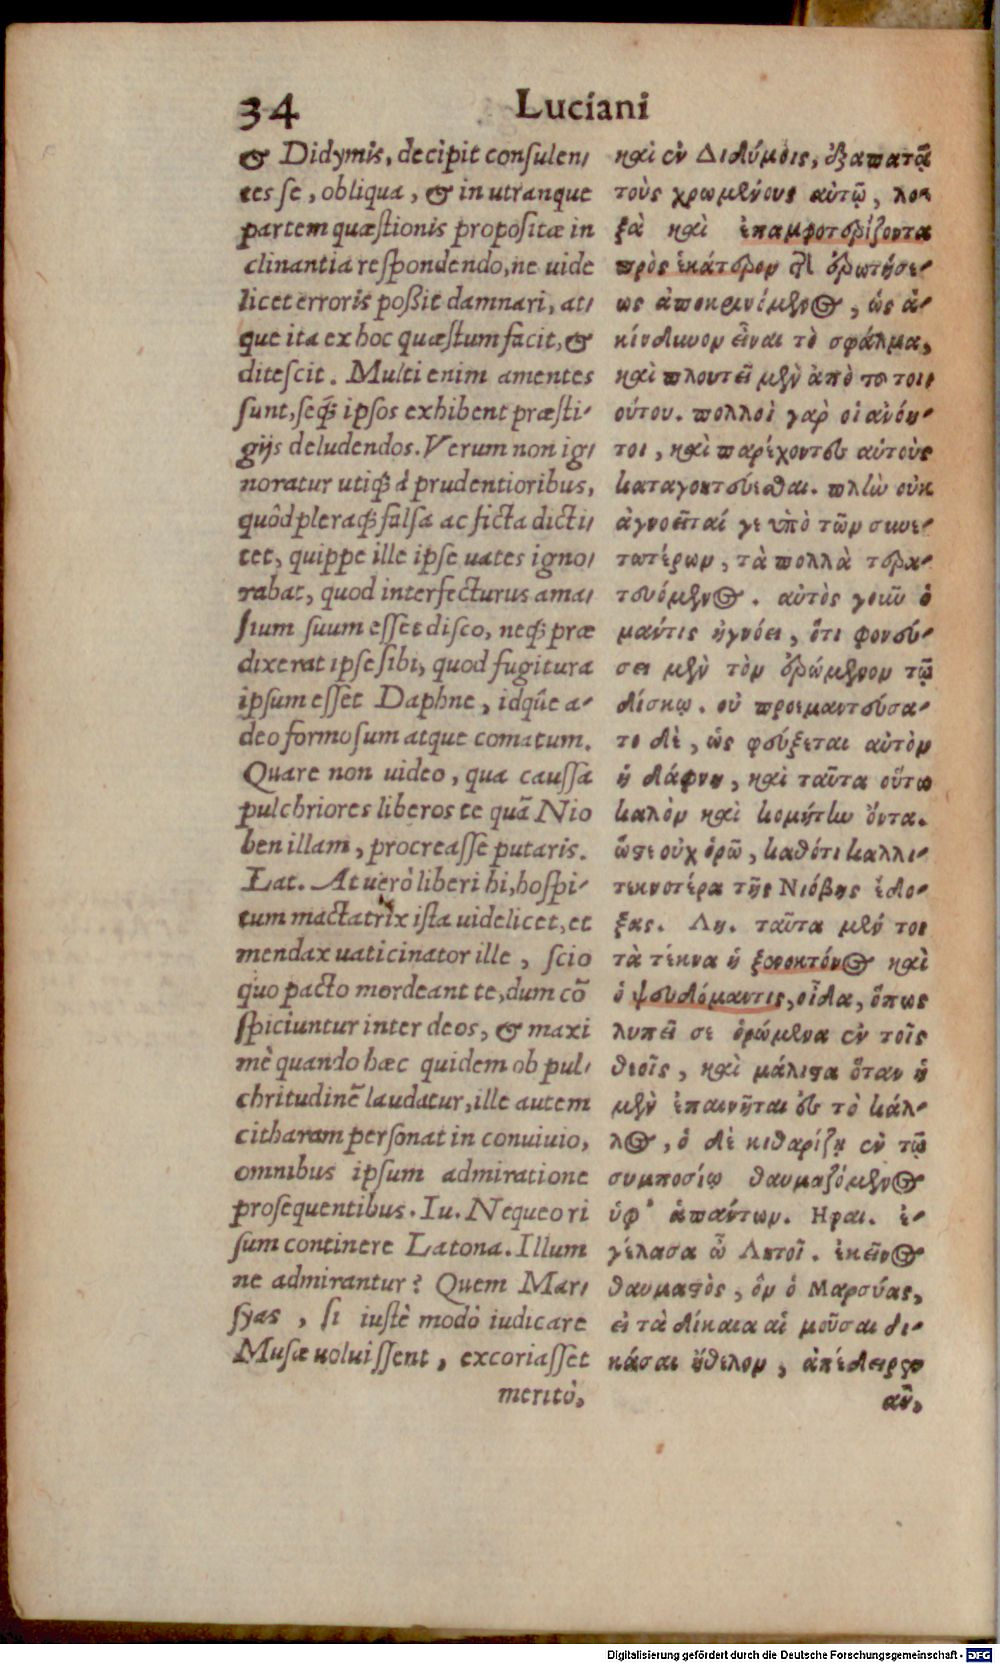 34 Luciani
& Didymis, decipit consulen-
tes se, obliqua, & in utranque
partem quæstionis propositæ in
clinantia respondendo, ne uide
licet erroris poßit damnari, at-
que ita ex hoc quæstum facit, &
ditescit. Multi enim amentes
sunt, seq́; ipsos exhibent præsti-
gijs deludendos. Verum non ig-
noratur utiq; à prudentioribus,
quòd pleraq; falsa ac ficta dicti-
tet, quippe ille ipse uates igno-
rabat, quod interfecturus ama-
sium suum esset disco, neq; præ
dixerat ipse sibi, quod fugitura
ipsum esset Daphne, idq́ue a-
deo formosum atque comatum.
Quare non uideo, qua caussa
pulchriores liberos te quã Nio
ben illam, procreasse putaris.
Lat. At uerò liberi hi, hospi-
tum mactatrix ista uidelicet, et
mendax uaticinator ille, scio
quo pacto mordeant te, dum cõ
spiciuntur inter deos, & maxi
mè quando hæc quidem ob pul-
chritudinẽ laudatur, ille autem
citharam personat in conuiuio,
omnibus ipsum admiratione
prosequentibus. Iu. Nequeo ri
sum continere Latona. Illum
ne admirantur? Quem Mar-
syas, si iustè modò iudicare
Musæ uoluissent, excoriasset
meritò,
καὶ ἐν Διδύμοις, ἐξαπατᾷ
τοὺς χρωμένους αὐτῷ, λο-
ξὰ καὶ ἐπαμφοτερίζοντα
πρὸς ἑκάτερον τῆς ἐρωτήσε-
ως ἀποκρινόμενος, ὡς ἀ-
κίνδυνον εἶναι τὸ σφάλμα,
καὶ πλουτεῖ μὲν ἀπὸ τοῦ τοι-
ούτου. πολλοὶ γὰρ οἱ ἀνόη-
τοι, καὶ παρέχοντες αὑτοὺς
καταγοητεύεσθαι. πλὴν οὐκ
ἀγνοεῖταί γε ὑπὸ τῶν συνε-
τωτέρων, τὰ πολλὰ τερα-
τευόμενος. αὐτὸς γοιῦ ὁ
μάντις ἠγνόει, ὅτι φονεύ-
σει μὲν τὸν ἐρώμενον τῷ
δίσκῳ. οὐ προεμαντεύσα-
το δὲ, ὡς φεύξεται αὐτὸν
ἡ δάφνη, καὶ ταῦτα οὕτω
καλὸν καὶ κομήτην ὄντα.
ὥστε οὐχ ὁρῶ, καθότι καλλι-
τεκνοτέρα τῆς Νιόβης ἔδο-
ξας. Λη. ταῦτα μέν τοι
τὰ τέκνα ἡ ξενοκτόνος καὶ
ὁ ψευδόμαντις, οἶδα, ὅπως
λυπεῖ σε ὁρώμενα ἐν τοῖς
θεοῖς, καὶ μάλιστα ὅταν ἡ
μὲν ἐπαινῆται ἐς τὸ κάλ-
λος, ὁ δὲ κιθαρίζῃ ἐν τῷ
συμποσίῳ θαυμαζόμενος
ὑφ' ἁπάντων. Ηραι. ἐ-
γέλασα ὦ Λητοῖ. ἐκεῖνος
θαυμαστὸς, ὃν ὁ Μαρσύας,
εἰ τὰ δίκαια αἱ μοῦσαι δι-
κάσαι ἤθελον, ἀπέδειρεν
ἂν,
Digitalisierung gefördert durch die Deutsche Forschungsgemeinschaft - DFG